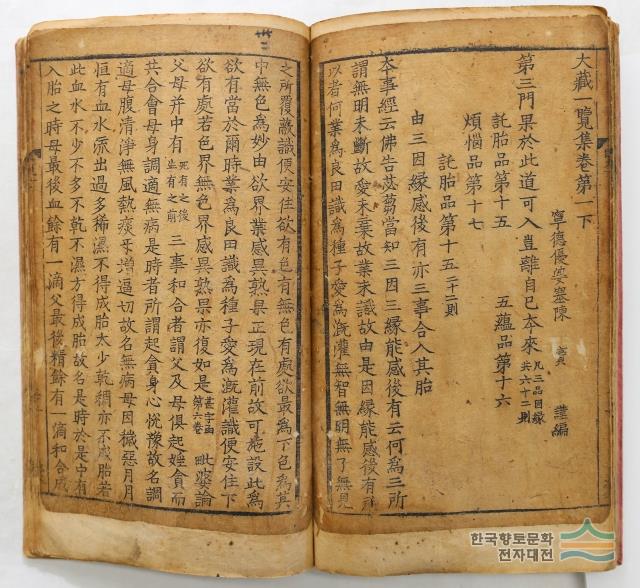 大藏一覽集卷第一下
寧德優婆塞陳 實 謹編
第三門果於此道可入豈離自已夲來 凡三品因緣共六十二則
託胎品第十五 五蘊品第十六
煩惱品第十七
託胎品第十五 二十二則
由三因緣感後有亦三事合入其胎
夲事經云佛告苾芻當知三因三緣能感後有云何為三所
謂無明未斷故愛未棄故業未識故由是因緣能感後有所
以者何業為良田識為種子愛為溉灌無智無明無了無見
之所覆蔽識便安住欲有色有無色有處欲最為下色為其
中無色為妙由欲界業感異熟果正現在前故可施設此為
欲有當於爾時業為良田識為種子愛為溉灌識便安住下
欲有處若色界無色界感異熟果亦復如是 甚字函第六卷 毗婆論
父母并中有 死有之後生有之前 三事和合者謂父及母俱起婬貪而
共合會母身調適無病是時者所謂起貪身心悅豫故名調
適母腹清淨無風熱痰增逼切故名無病母因穢惡月月
恒有血水流出過多稀濕不得成胎太少乾稠亦不成胎若
此血水不少不多不乾不濕方得成胎故名是時於是中有
入胎之時母最後血餘有一滴父最後精餘有一滴和合成
한국향토문화
전자대전